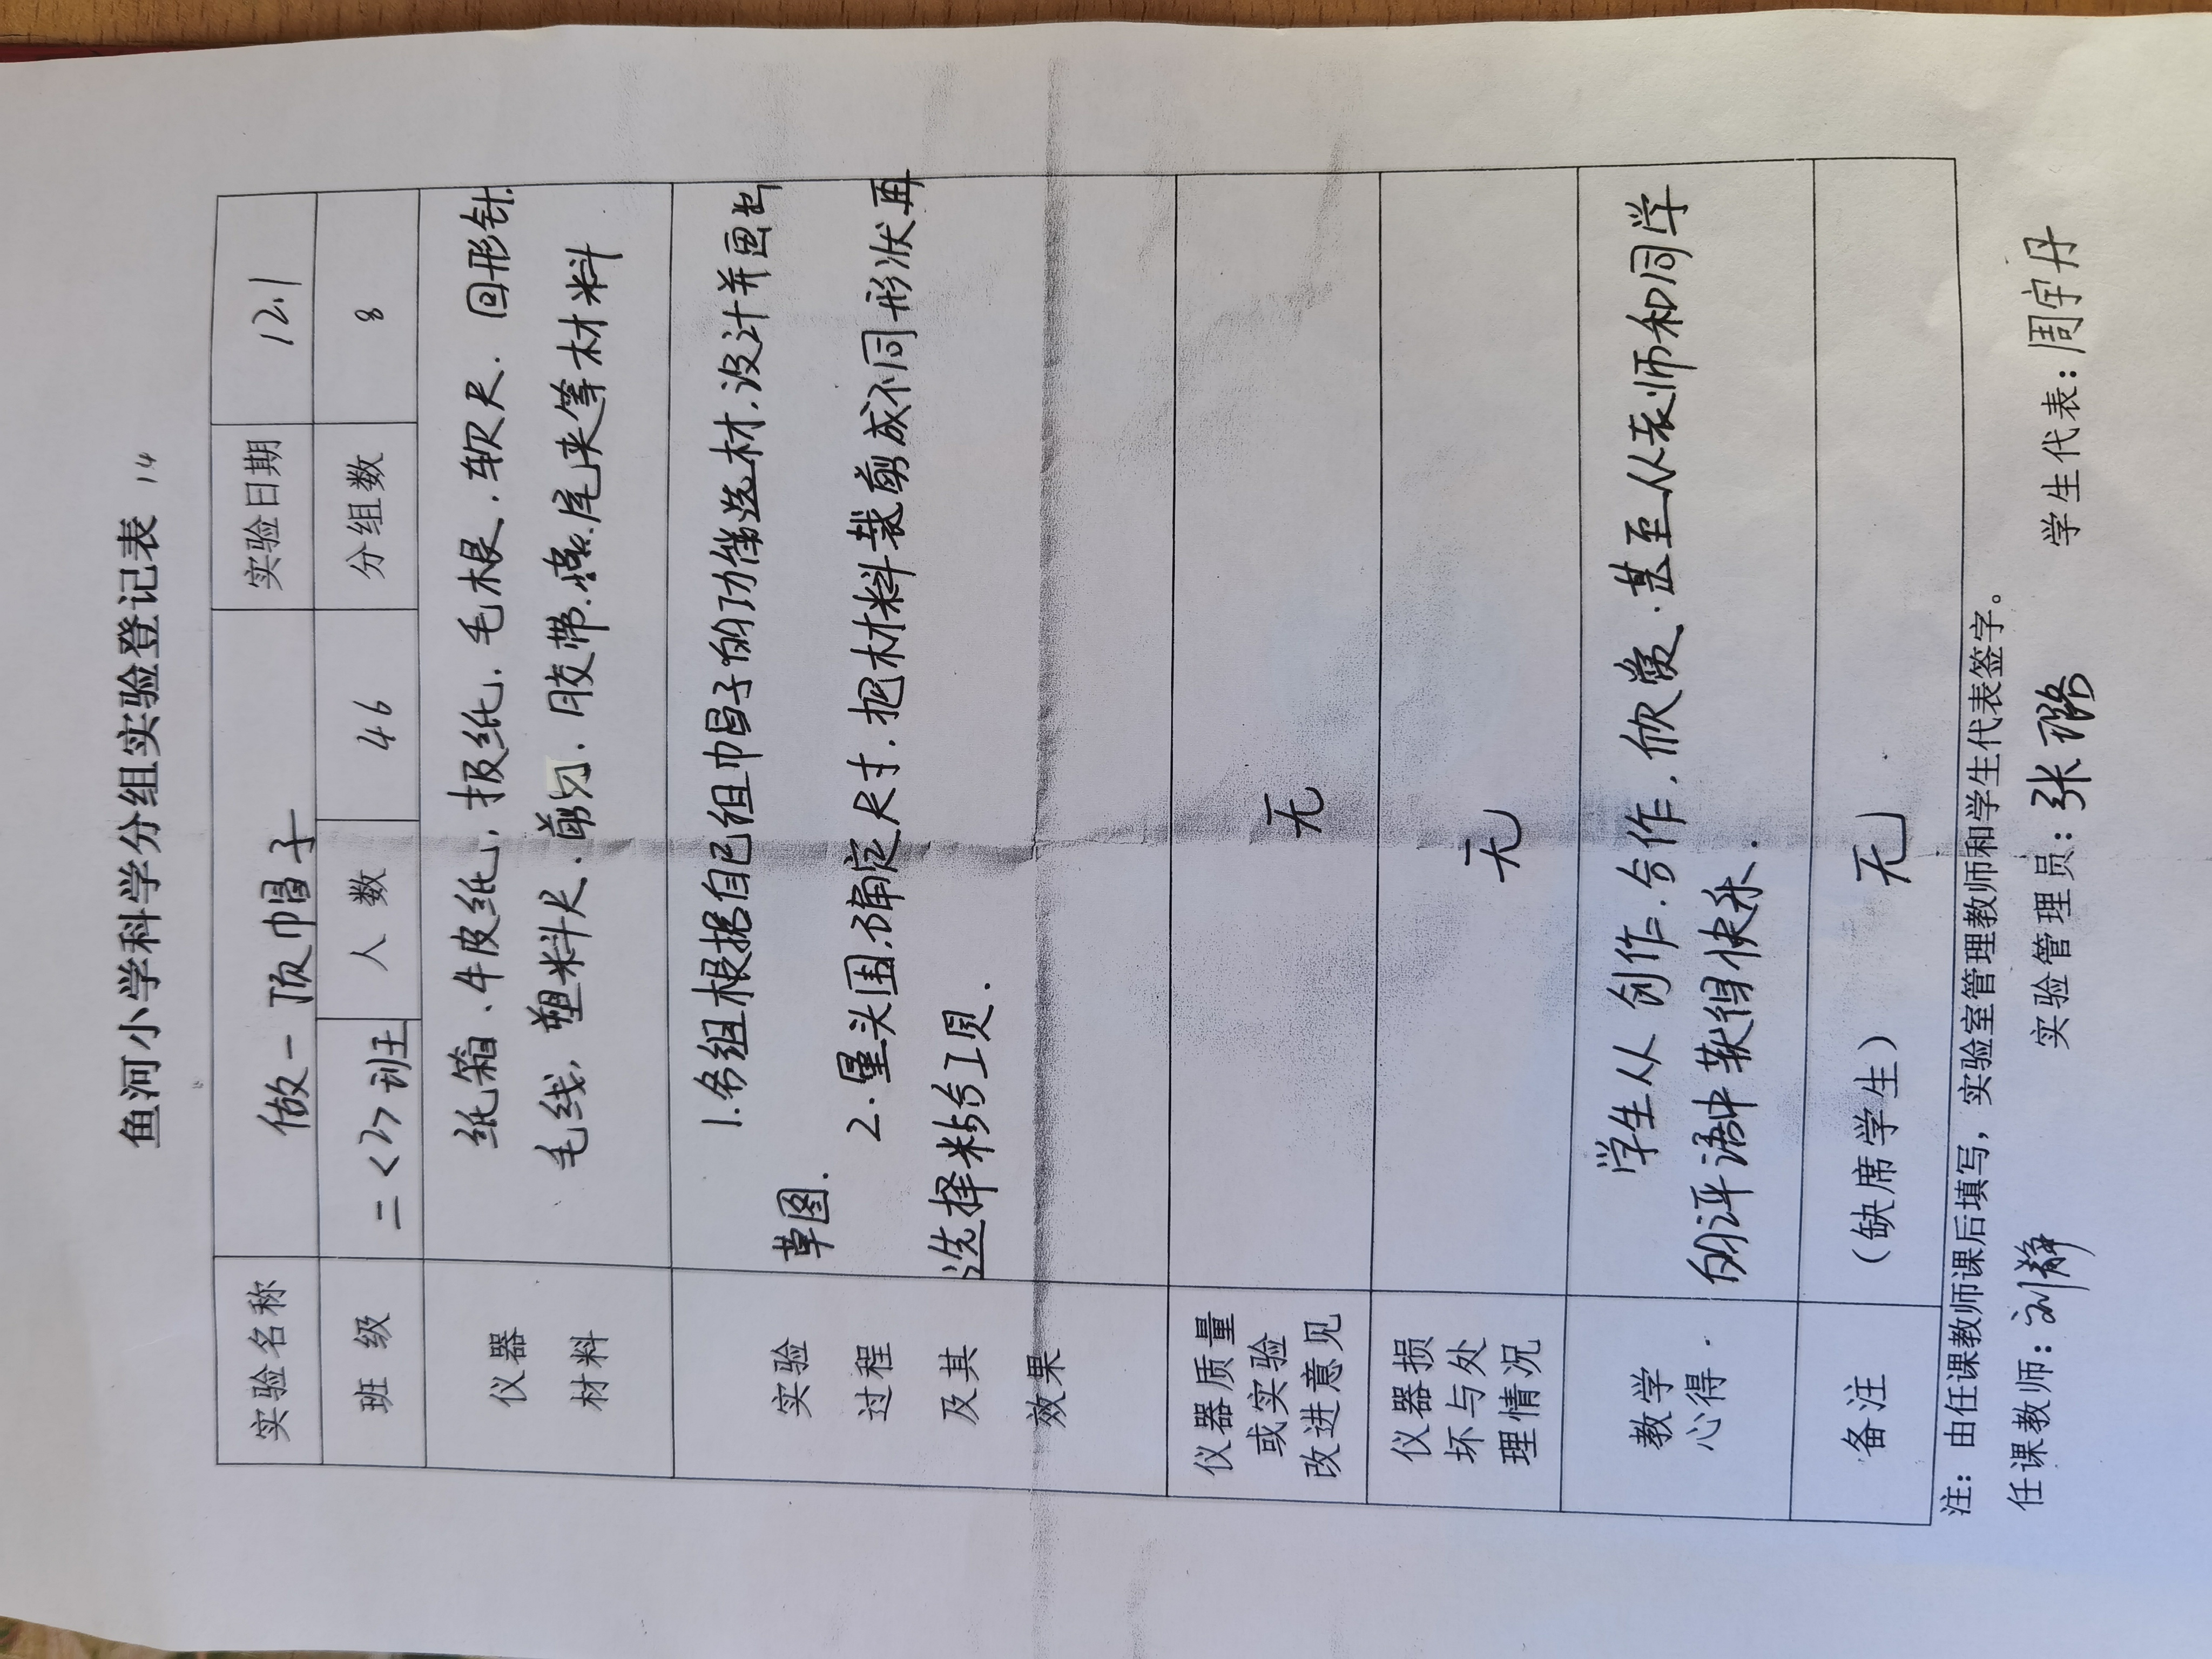 鱼河小学科学分组实验登记表 14
实验名称 做一顶帽子 实验日期 12.1
班 级 二<2>班 人 数 46 分组数 8
仪器
材料
纸箱、牛皮纸,报纸,毛根,软尺.回形针.
毛线,塑料尺.剪刀.胶带.燕尾夹等材料
实验
过程
及其
效果
1.各组根据自己组巾帽子的功能选材.设计并画出
草图.
2.量头围.确定尺寸.把材料裁剪成不同形状再
选择粘合工具.
仪器质量
或实验
改进意见
无
仪器损
坏与处
理情况
无
教学
心得.
学生从创作.合作.欣赏.甚至从老师和同学
的评语中获得快乐.
备注 (缺席学生) 无
注:由任课教师课后填写,实验室管理教师和学生代表签字。
任课教师:刘静 实验管理员:张璐 学生代表:周宇丹